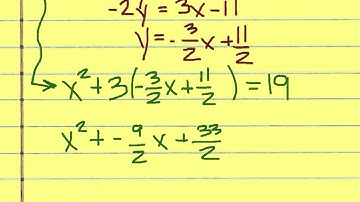 -2y = 3x-11
y = -3/2x + 11/2
x² + 3(-3/2x + 11/2) = 19
x² + - 9/2 x + 33/2